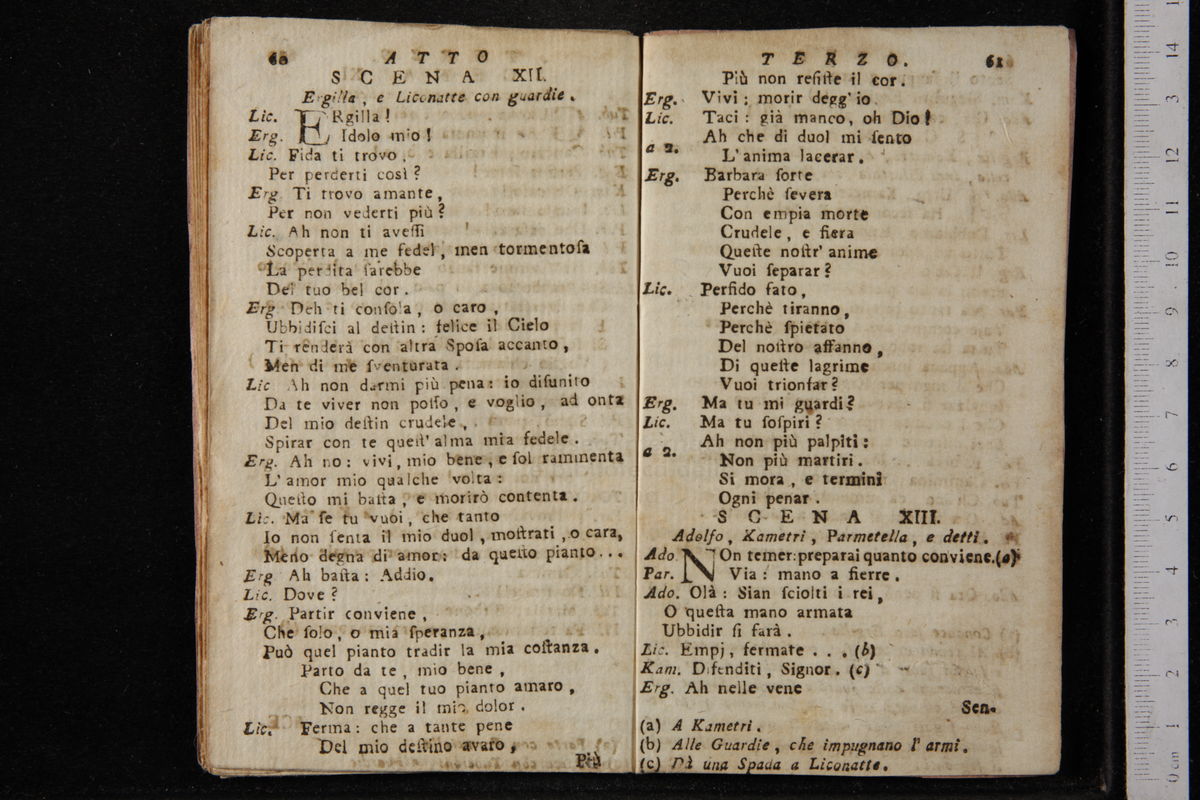 60 ATTO
SCENA XII.
Ergilla, e Liconatte con guardie.
Lic. ERgilla!
Erg. Idolo mio!
Lic. Fida ti trovo,
Per perderti così?
Erg. Ti trovo amante,
Per non vederti più?
Lic. Ah non ti aveſſi
Scoperta a me fedel, men tormentoſa
La perdita ſarebbe
Del tuo bel cor.
Erg. Deh ti conſola, o caro,
Ubbidiſci al deſtin: felice il Cielo
Ti renderà con altra Spoſa accanto,
Men di me ſventurata.
Lic. Ah non darmi più pena: io diſunito
Da te viver non poſſo, e voglio, ad onta
Del mio deſtin crudele,
Spirar con te queſt'alma mia fedele.
Erg. Ah no: vivi, mio bene, e ſol rammenta
L'amor mio qualche volta:
Queſto mi baſta, e morirò contenta.
Lic. Ma ſe tu vuoi, che tanto
Io non ſenta il mio duol, moſtrati, o cara,
Meno degna di amor: da queſto pianto...
Erg. Ah baſta: Addio.
Lic. Dove?
Erg. Partir conviene,
Che ſolo, o mia ſperanza,
Può quel pianto tradir la mia coſtanza.
Parto da te, mio bene,
Che a quel tuo pianto amaro,
Non regge il mio dolor.
Lic. Ferma: che a tante pene
Del mio deſtino avaro,
Più
TERZO. 61
Più non reſiſte il cor.
Erg. Vivi; morir degg'io
Lic. Taci: già manco, oh Dio!
Ah che di duol mi ſento
a 2. L'anima lacerar.
Erg. Barbara ſorte
Perchè ſevera
Con empia morte
Crudele, e fiera
Queſte noſtr'anime
Vuoi ſeparar?
Lic. Perfido fato,
Perchè tiranno,
Perchè ſpietato
Del noſtro affanno,
Di queſte lagrime
Vuoi trionfar?
Erg. Ma tu mi guardi?
Lic. Ma tu ſoſpiri?
Ah non più palpiti:
a 2. Non più martiri.
Si mora, e termini
Ogni penar.
SCENA XIII.
Adolfo, Kametri, Parmetella, e detti.
Ado. NOn temer: preparai quanto conviene. (a)
Par. Via: mano a fierre.
Ado. Olà: Sian ſciolti i rei,
O queſta mano armata
Ubbidir ſi farà.
Lic. Empj, fermate... (b)
Kam. Difenditi, Signor. (c)
Erg. Ah nelle vene
Sen.
(a) A Kametri.
(b) Alle Guardie, che impugnano l'armi.
(c) Dà una Spada a Liconatte.